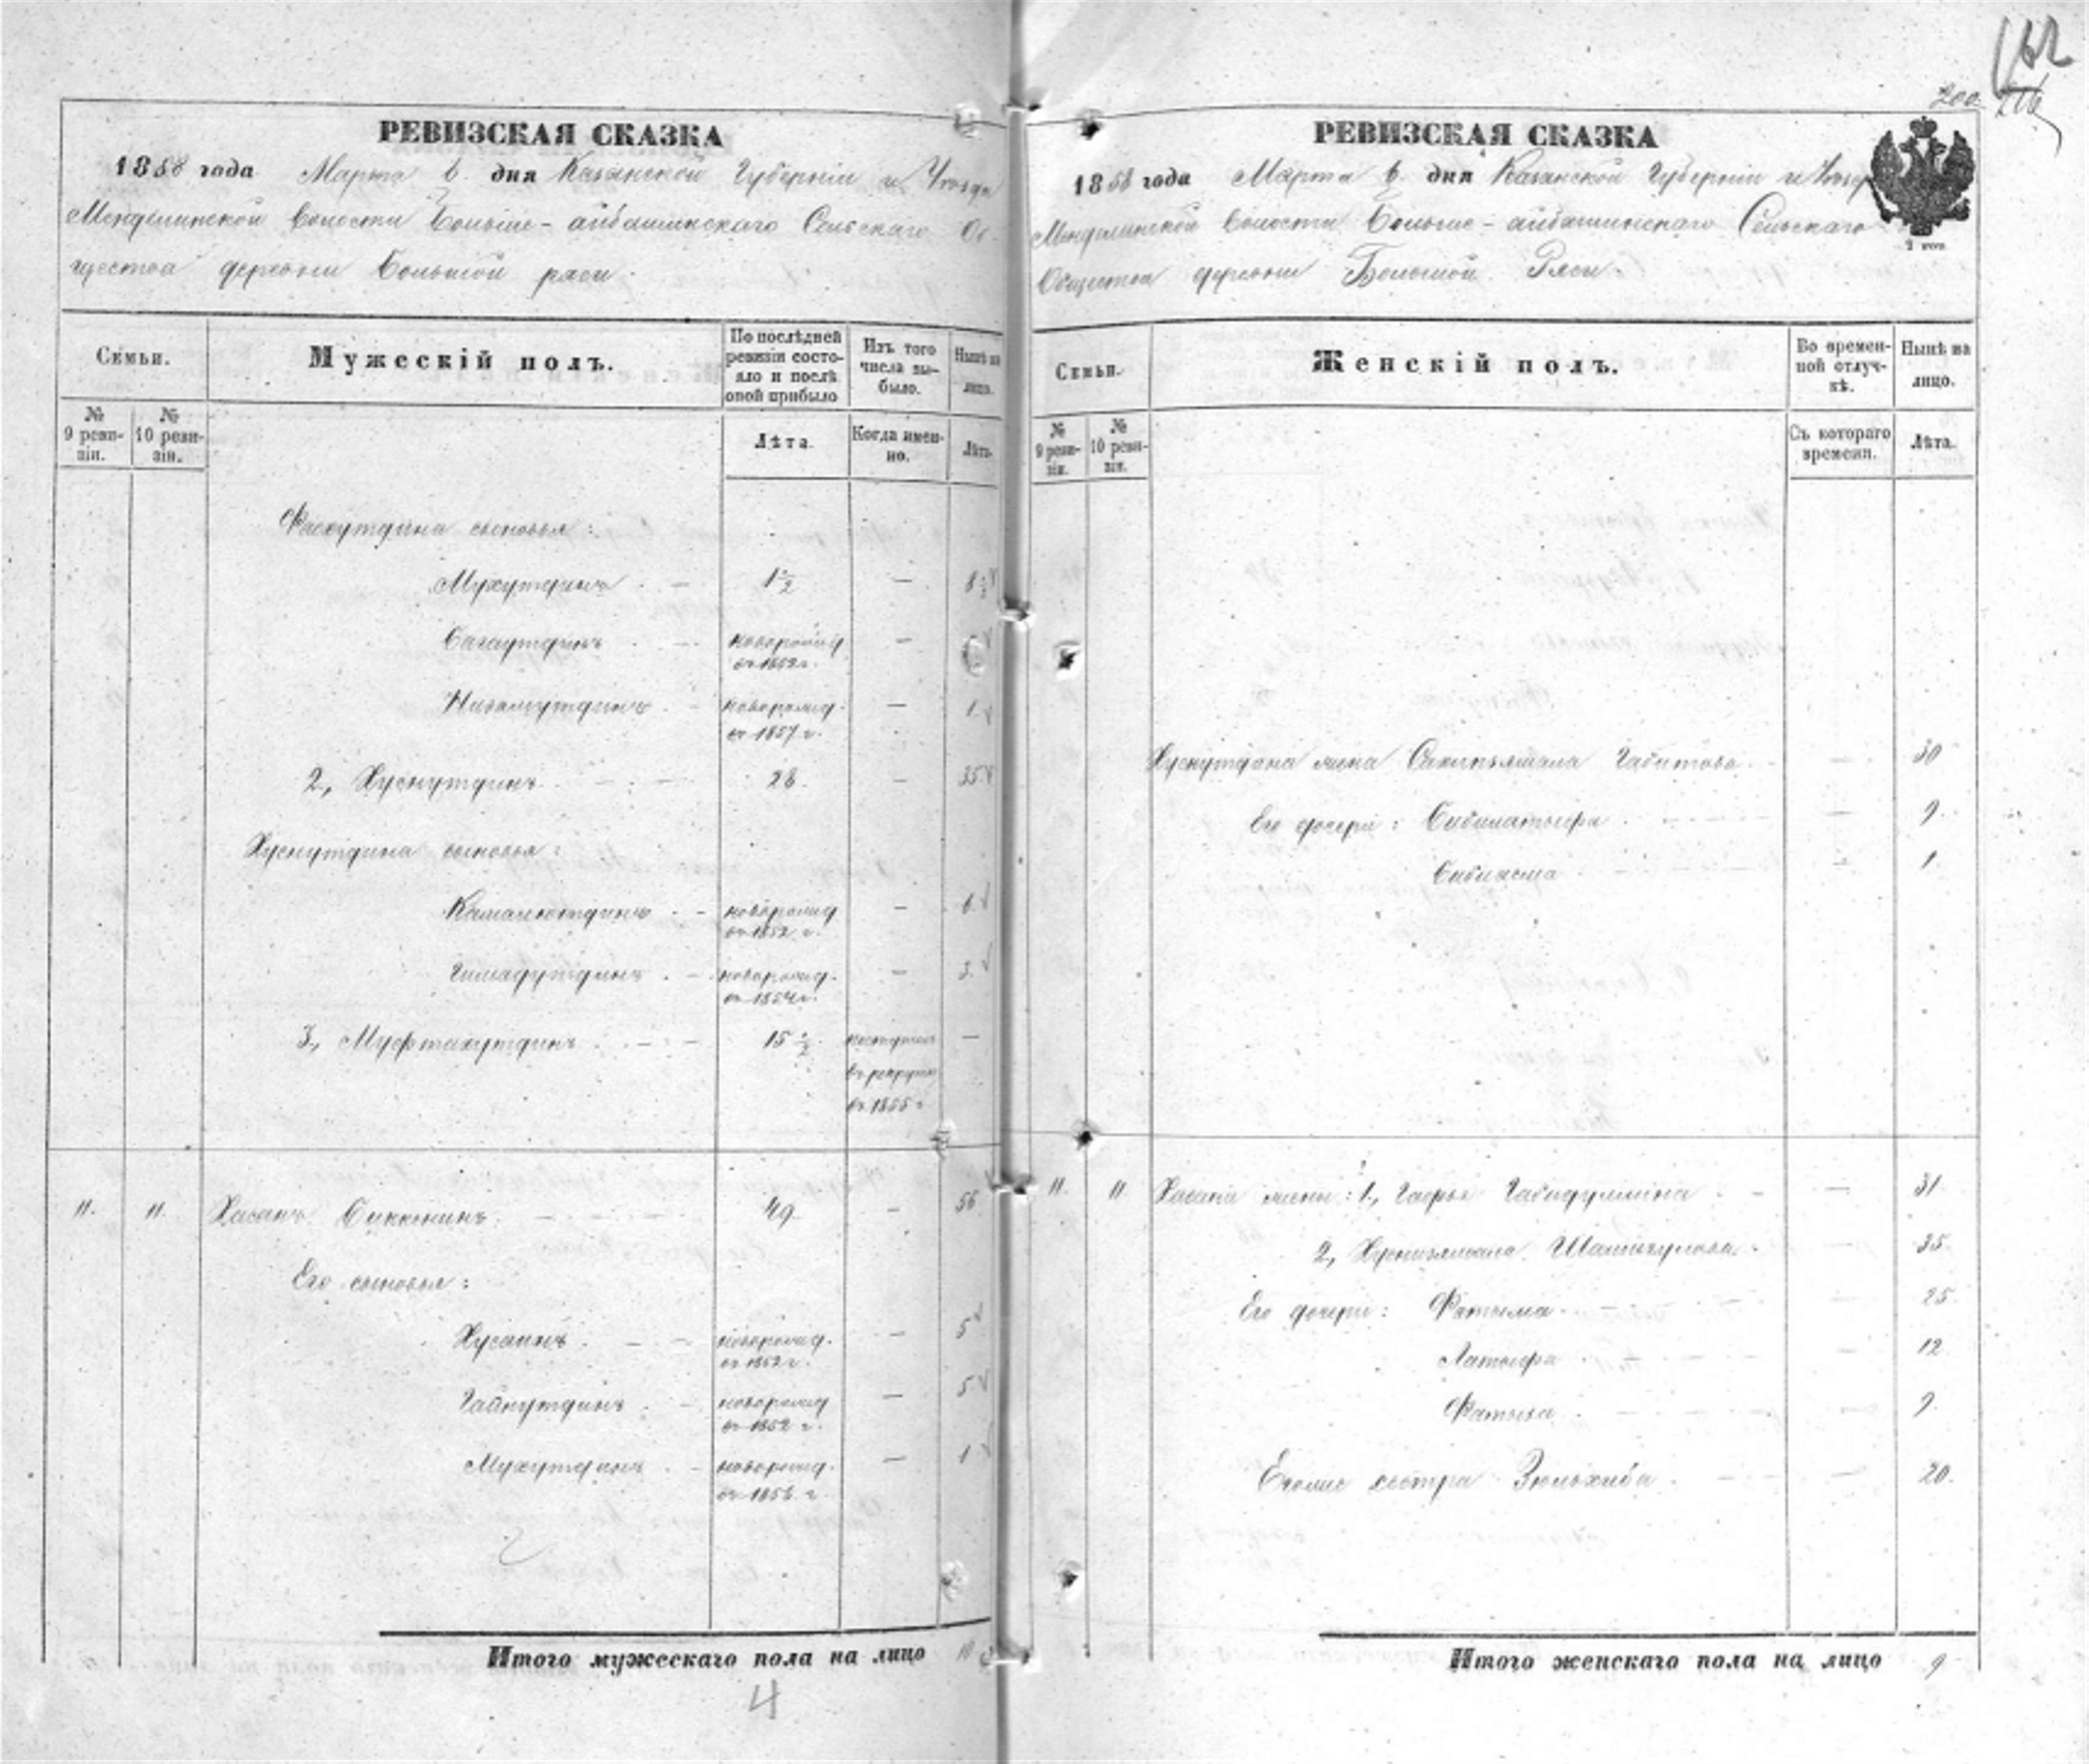 200
РЕВИЗСКАЯ СКАЗКА
1858 года Марта 6. дня Казанской Губерніи и Уѣзда
Менделинской волости Больше-айбашинскаго Сельскаго Об-
щества деревни Большой ряси.
Семьи.
Мужескій полъ.
По послѣдней ревизіи состояло и послѣ оной прибыло
Изъ того числа выбыло.
Нынѣ на лицо.
№ 9 ревизіи.
№ 10 ревизіи.
Лѣта.
Когда именно.
Лѣта.
Фасхутдина сыновья:
Мухутдинъ 1½ — 8½
Багаутдинъ новорожд въ 1852 г. —
Низамутдинъ новорожд. въ 1857 г. — 1
2, Хуснутдинъ 28 — 35
Хуснутдина сыновья:
Камалютдинъ новорожд въ 1852 г. — 6
Гимадутдинъ новорожд. въ 1854 г. — 3
3, Муфтахутдинъ 15½ поступилъ въ рекруты въ 1855 г. —
11. 11. Хасанъ Биккинѣ 49 — 56
Его сыновья:
Хусаинъ новорожд. въ 1852 г. — 5
Гайнутдинъ новорожд въ 1852 г. — 5
Мухутдинъ новорожд. въ 1856 г. — 1
Итого мужескаго пола на лицо 10
4
РЕВИЗСКАЯ СКАЗКА
1858 года Марта 6. дня Казанской Губерніи и Уѣзд
Менделинской волости Больше-айбашинскаго Сельскаго
Общества деревни Большой Ряси.
Семьи.
Женскій полъ.
Во временной отлучкѣ.
Нынѣ на лицо.
№ 9 ревизіи.
№ 10 ревизіи.
Съ котораго времени.
Лѣта.
Хуснутдина жена Габитова — 30
Его дочери: Бибилатыфа — 9
Бибиасма — 1
11. 11 Хасана жены: 1, Гафья — 31
2, Хуснизямала — 35
Его дочери: Фатыма — 25
Латыфа — 12
Фатыха — 9
Егоже сестра Зюльхаба — 20.
Итого женскаго пола на лицо 9